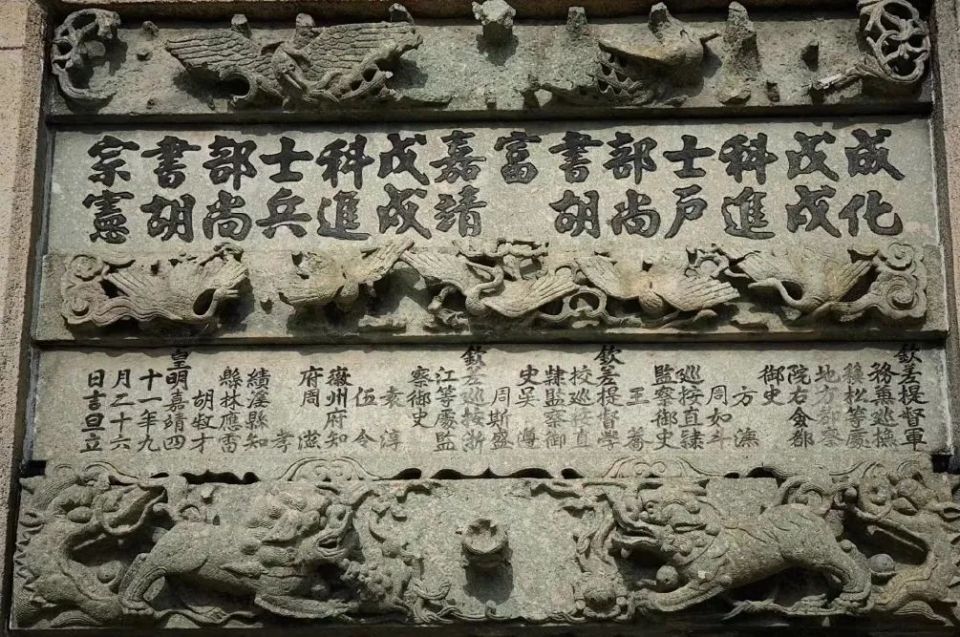 成化
戊戌
科進
士戶
部尚
書胡
富
嘉靖
戊戌
科進
士兵
部尚
書胡
宗憲
欽差提督軍
務兼巡撫
松等處
地方都察
院右僉都
御史
方濂
周如斗
巡按直隸
監察御史
王
欽差提督學
校巡按直
隸監察御
史吳
周斯盛
欽差巡按浙
江等處監
察御史
袁淳
伍令
徽州府知
府周滋
孝
績溪縣知
縣林應雷
胡叔才
皇明嘉靖四
十一年九
月二十六
日吉旦立